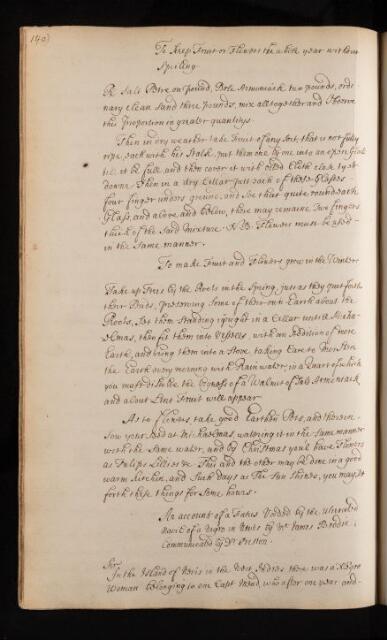 140)
To Keep Fruit or Flowers the whole year without
Spoiling
R Salt Petre one pound, Bole Armoniack two pounds, ordi-
nary clean Sand three pounds, mix all together and Observe
this Proportion in greater quantitys.
Then in dry weather take Fruit of any Sort, that is not fully
ripe, each with his Stalk, put them one by one into an open Glass
till it be full, and then cover it with oiled Cloth close tyed
downe. Then in a dry Cellar sett each of these Glasses
four finger under ground, and so that quite round each
Glass, and above and below, there may remaine two fingers
thick of the said Mixture. N.B. Flowers must be used
in the Same manner.
To make Fruit and Flowers grow in the Winter
Take up Trees by the Roots in the Spring, just as they put forth
their Buds, preserving Some of their own Earth about the
Roots, Set them Standing upright in a Cellar until Micha-
elmas, then sett them into Vessels, with an Addition of more
Earth, and bring them into a Stove taking Care to
the Earth every morning with Rain water, in a Quart of which
you must dissolve the bigness of a Walnut of Sal Armoniack
and about Lent Fruit will appear
As to Flowers take good Earthen Pots, and therein
Sow your Seed at Michaelmas, watering it in the same manner
with the Same water, and by Christmas you'l have Flowers
as Tulips Lillies &c This and the other may be done in a good
warm Kitchin, and Such days as the Sun Shines, you may Set
forth these things for Some hours.
An account of a Foetus Voided by the ulcerated
Navil of a Negro in Nevis by Mr James Brodie
Communicated by Dr Preston.
Sir,
In the Island of Nevis in the West Indies there was a Negro
Woman belonging to one Capt Mead, who after one year and